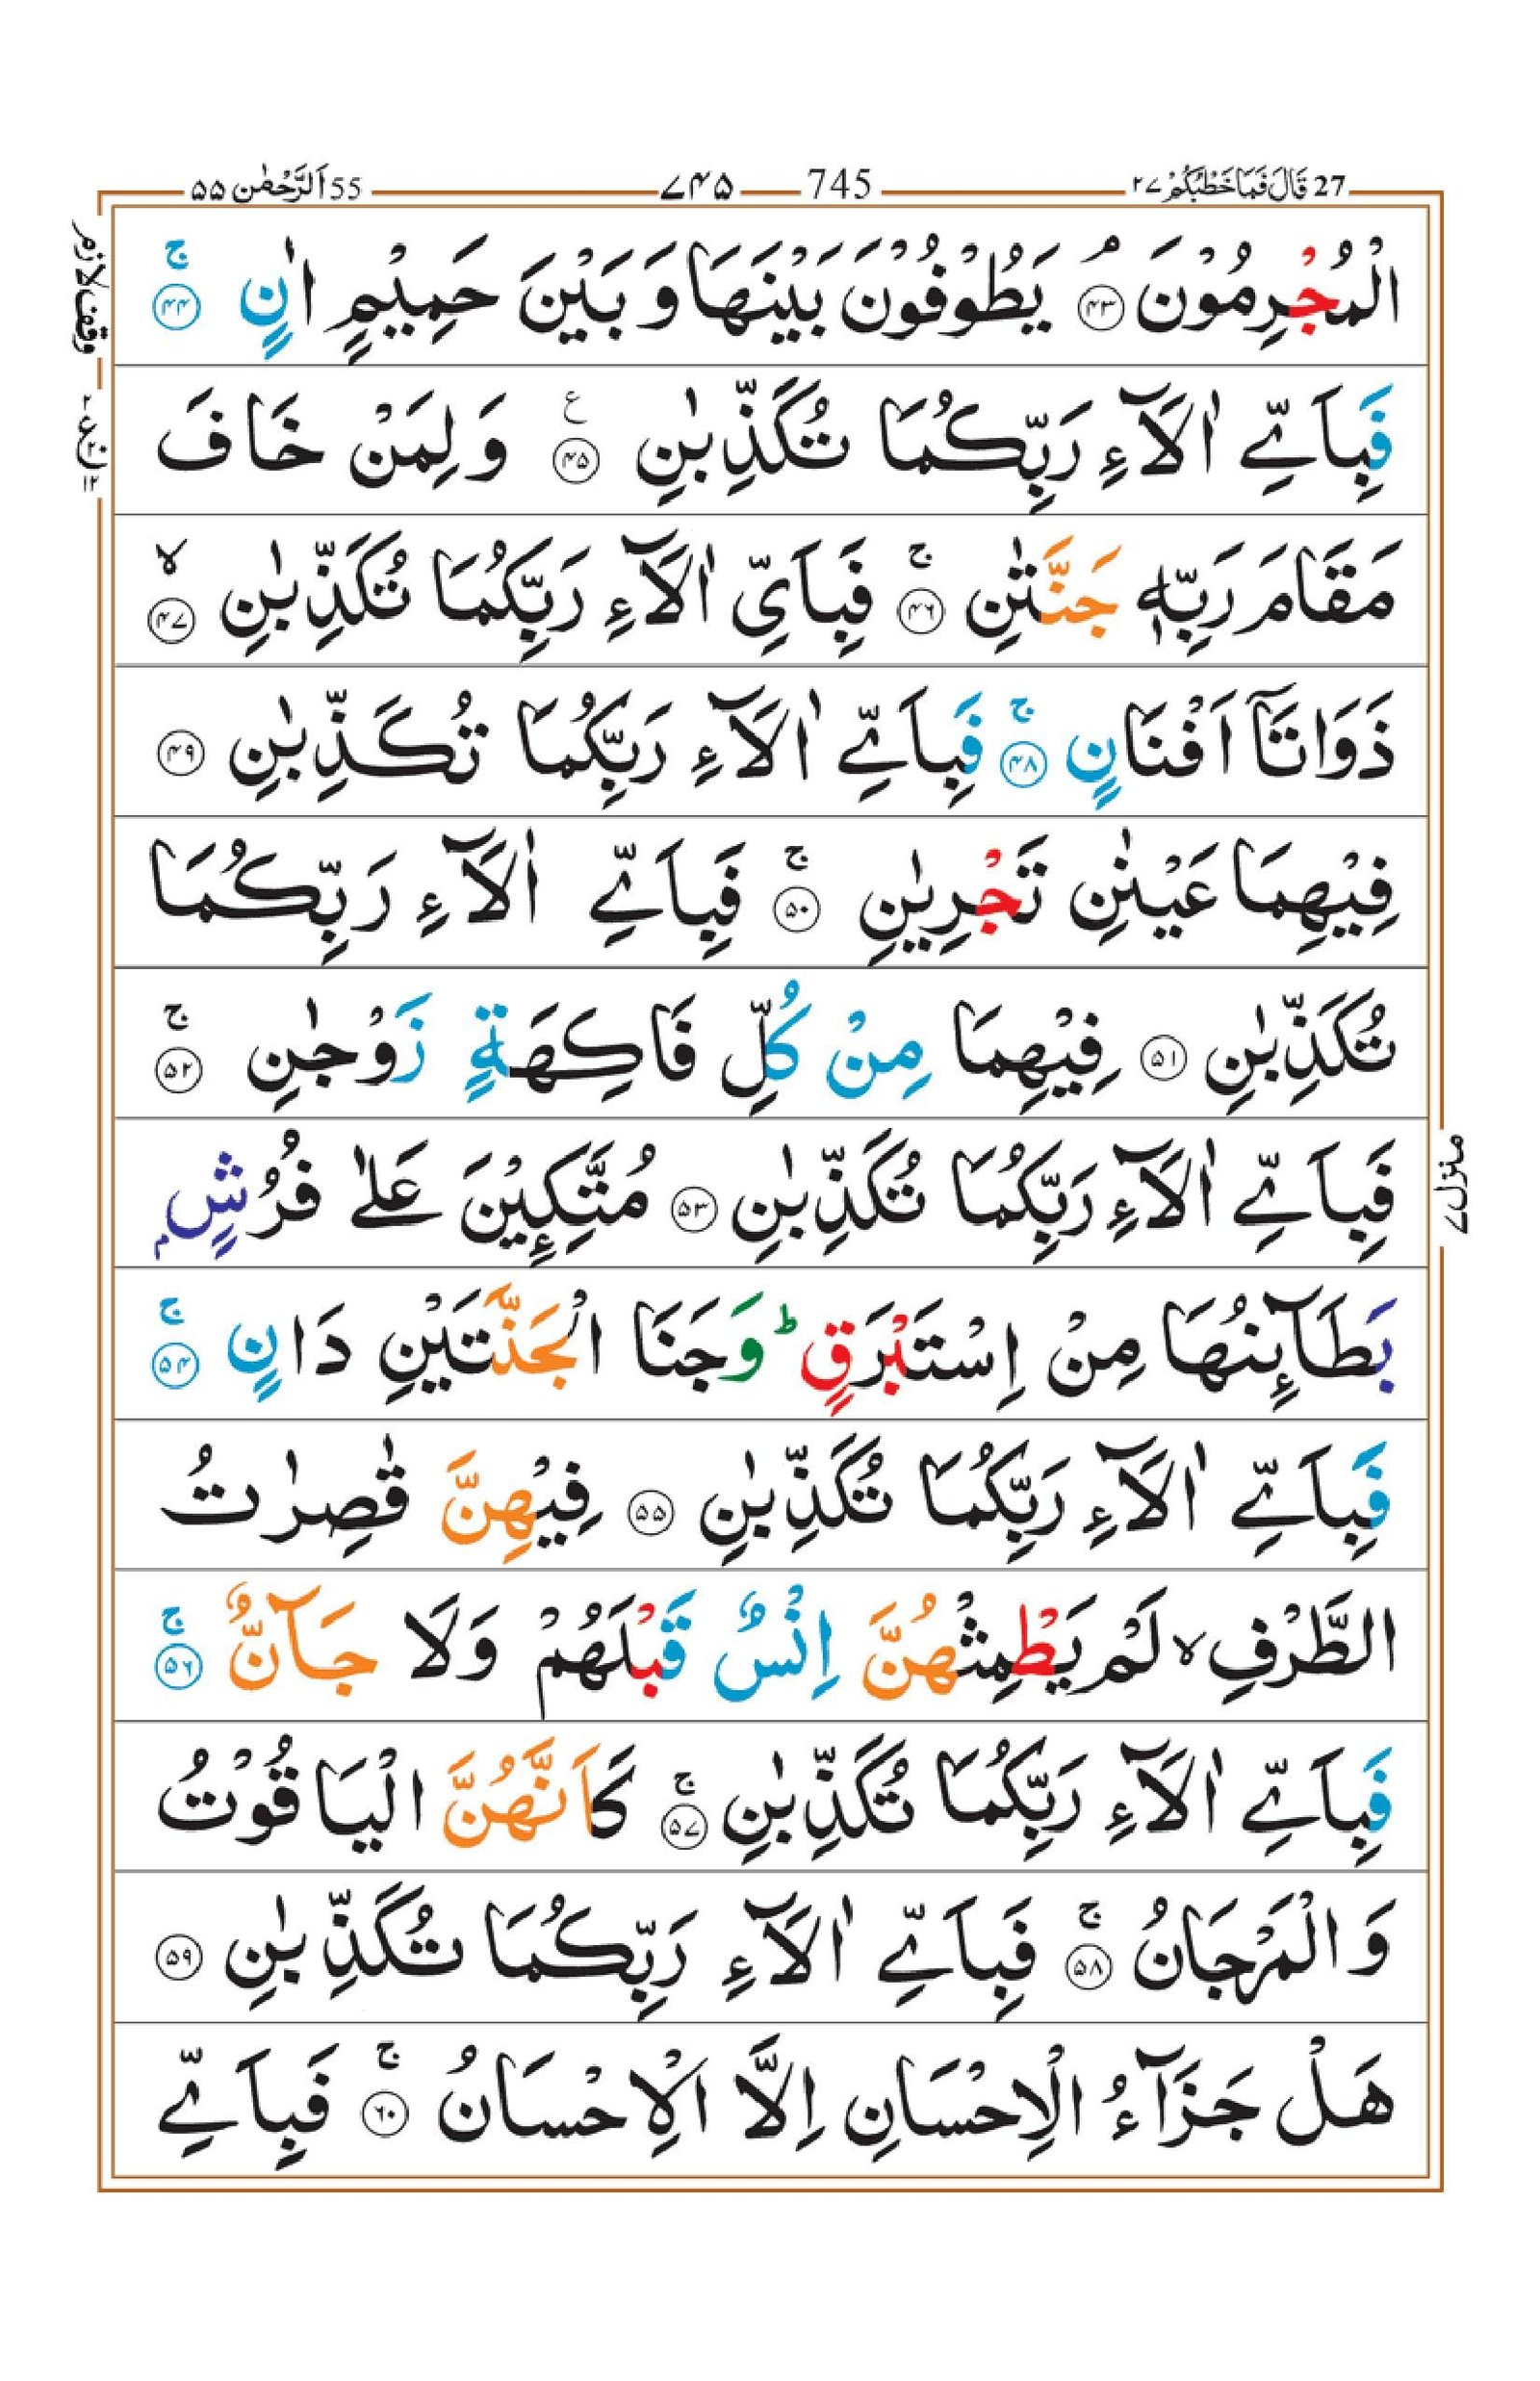 27 قَالَ فَمَا خَطْبُكُمْ ۲۷ 745 ۷۴۵ 55 اَلرَّحْمٰن ۵۵
الْمُجْرِمُوْنَ ۘ ﴿۴۳﴾ يَطُوْفُوْنَ بَيْنَهَا وَ بَيْنَ حَمِيْمٍ اٰنٍ ۚ ﴿۴۴﴾
فَبِاَيِّ اٰلَآءِ رَبِّكُمَا تُكَذِّبٰنِ ﴿۴۵﴾ ع وَ لِمَنْ خَافَ
مَقَامَ رَبِّهٖ جَنَّتٰنِ ۚ ﴿۴۶﴾ فَبِاَيِّ اٰلَآءِ رَبِّكُمَا تُكَذِّبٰنِ ۙ ﴿۴۷﴾
ذَوَاتَاۤ اَفْنَانٍ ۚ ﴿۴۸﴾ فَبِاَيِّ اٰلَآءِ رَبِّكُمَا تُكَذِّبٰنِ ﴿۴۹﴾
فِيْهِمَا عَيْنٰنِ تَجْرِيٰنِ ۚ ﴿۵۰﴾ فَبِاَيِّ اٰلَآءِ رَبِّكُمَا
تُكَذِّبٰنِ ﴿۵۱﴾ فِيْهِمَا مِنْ كُلِّ فَاكِهَةٍ زَوْجٰنِ ۚ ﴿۵۲﴾
فَبِاَيِّ اٰلَآءِ رَبِّكُمَا تُكَذِّبٰنِ ﴿۵۳﴾ مُتَّكِـِٕيْنَ عَلٰى فُرُشٍۭ
بَطَآئِنُهَا مِنْ اِسْتَبْرَقٍ ؕ وَ جَنَا الْجَنَّتَيْنِ دَانٍ ۚ ﴿۵۴﴾
فَبِاَيِّ اٰلَآءِ رَبِّكُمَا تُكَذِّبٰنِ ﴿۵۵﴾ فِيْهِنَّ قٰصِرٰتُ
الطَّرْفِ ۙ لَمْ يَطْمِثْهُنَّ اِنْسٌ قَبْلَهُمْ وَلَا جَآنٌّ ۚ ﴿۵۶﴾
فَبِاَيِّ اٰلَآءِ رَبِّكُمَا تُكَذِّبٰنِ ۚ ﴿۵۷﴾ كَاَنَّهُنَّ الْيَاقُوْتُ
وَ الْمَرْجَانُ ۚ ﴿۵۸﴾ فَبِاَيِّ اٰلَآءِ رَبِّكُمَا تُكَذِّبٰنِ ﴿۵۹﴾
هَلْ جَزَآءُ الْاِحْسَانِ اِلَّا الْاِحْسَانُ ۚ ﴿۶۰﴾ فَبِاَيِّ
وقف لازم
منزل ۷